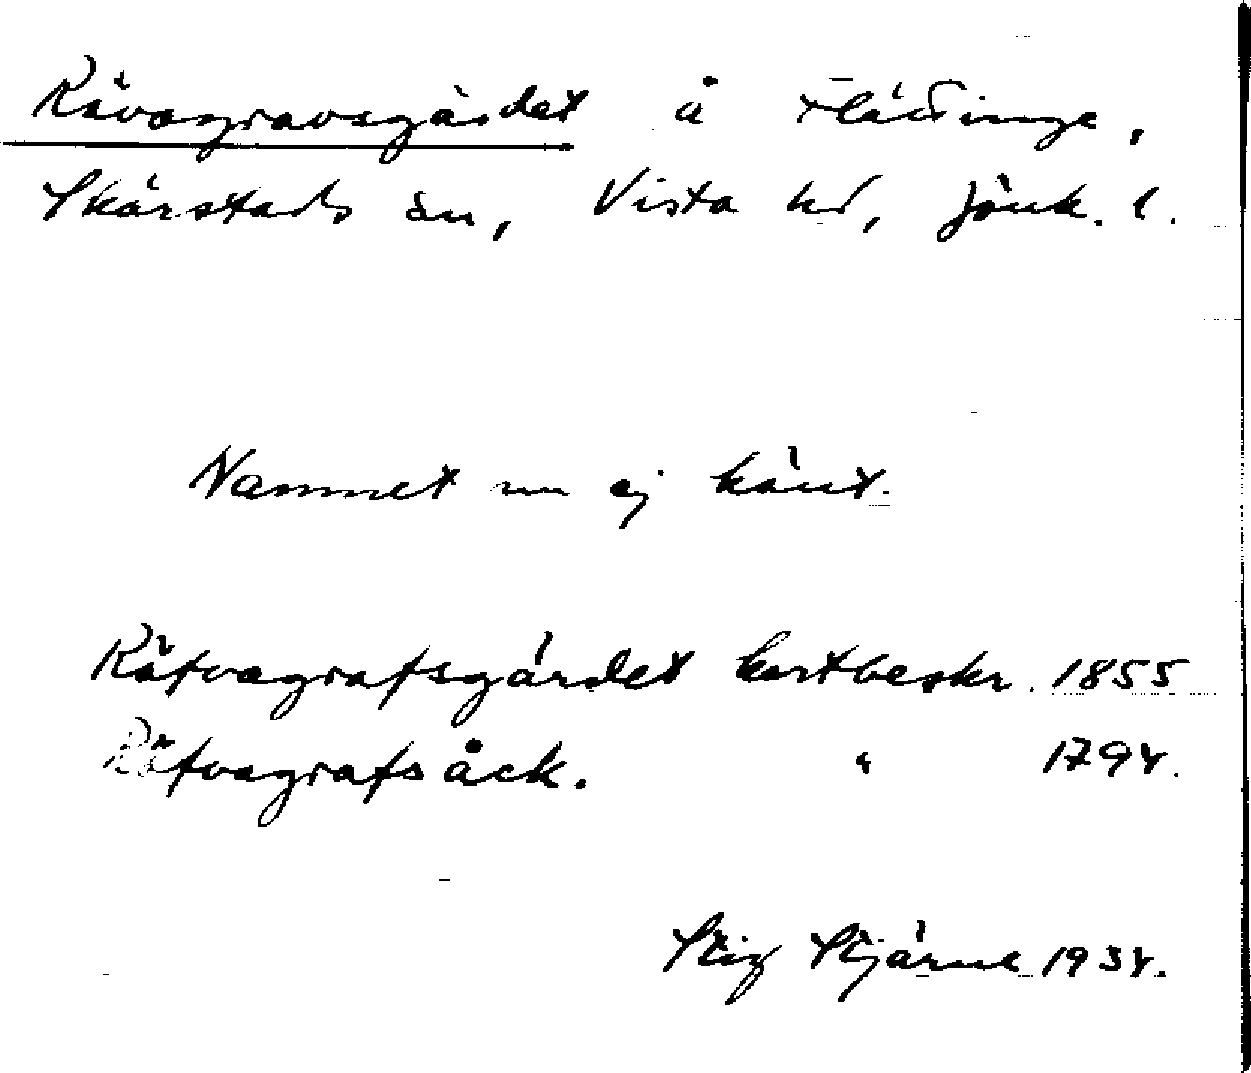 Rävagravsgärdet å Flättinge,
Skärstads sn, Vista hd, Jönk. l.
Namnet nu ej känt.
Räfvagrafsgärdet kartbeskr. 1855
Räfvagrafsåck. " 1794.
Stig Stjärne 1934.